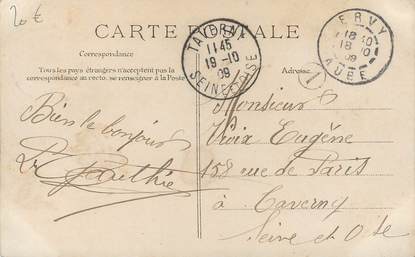 20€
CARTE POSTALE
ERVY
18 10
18-10
09
AUBE
TAVERNY
11 45
19-10
09
SEINE-ET-OISE
Correspondance
Tous les pays étrangers n'acceptent pas la
correspondance au recto. se renseigner à la Poste
Adresse
1
Bien le bonjour
Gauthier
Monsieur
Voix Eugène
158 rue de Paris
à Taverny
Seine et Oise